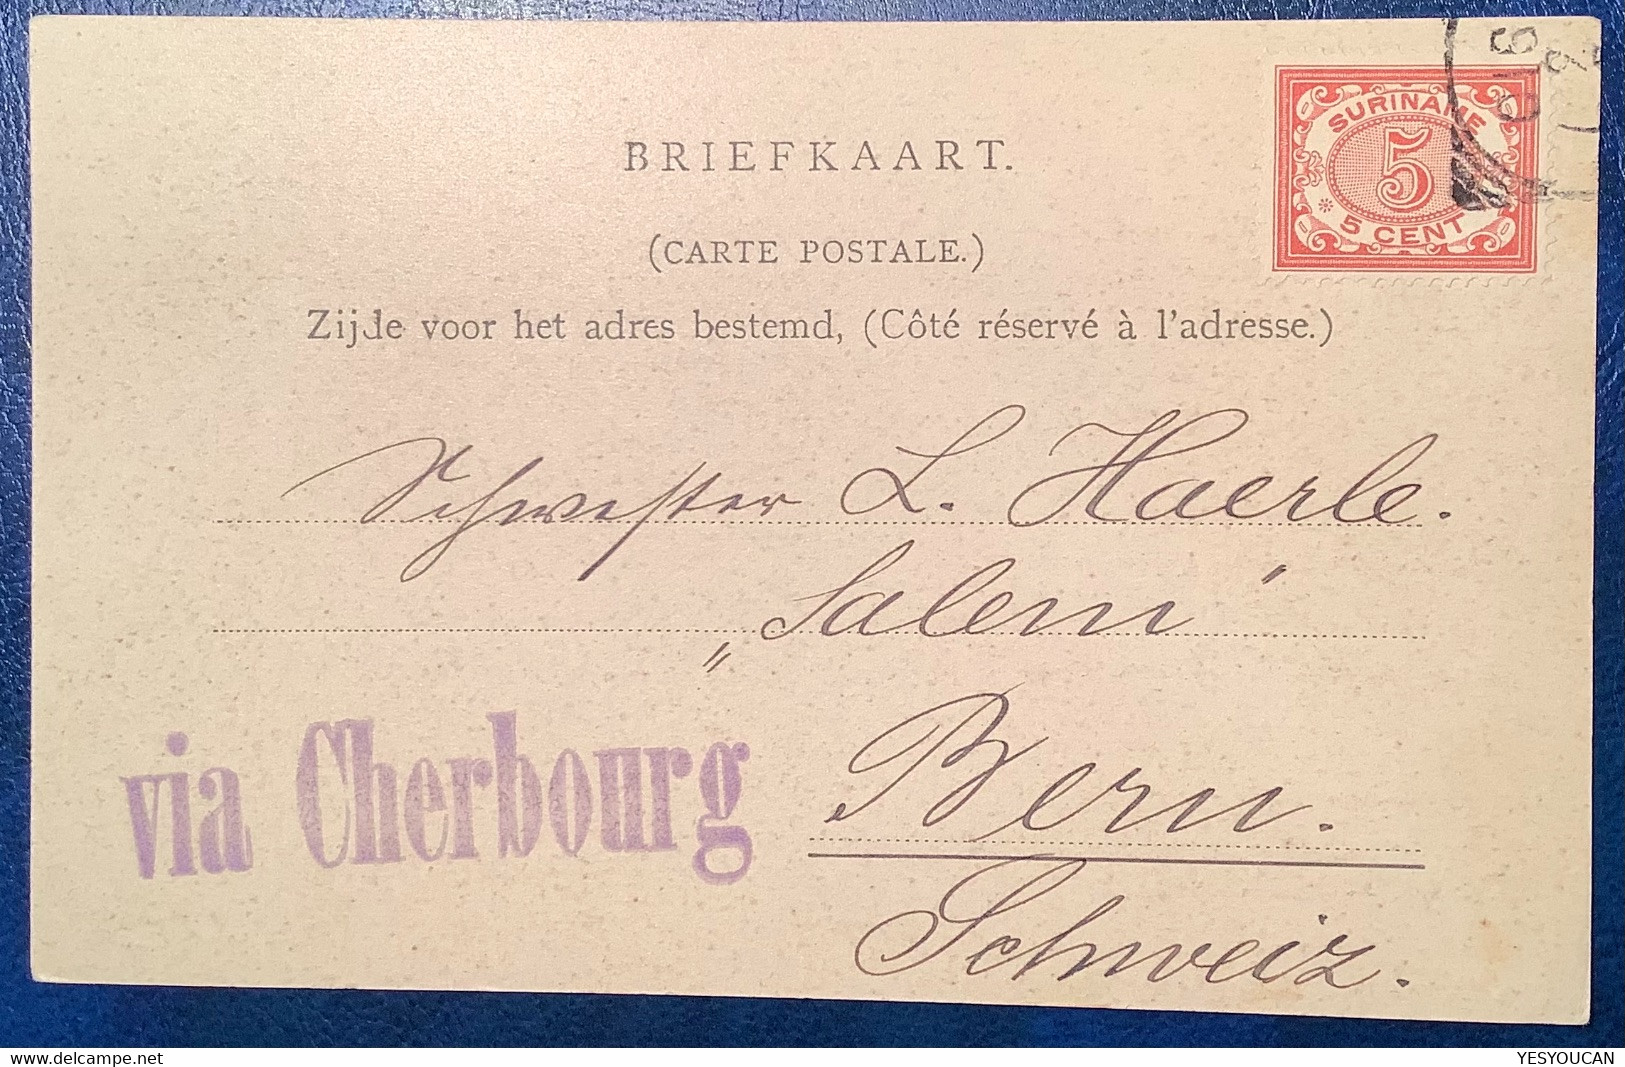 BRIEFKAART.
(CARTE POSTALE.)
Zijde voor het adres bestemd, (Côté réservé à l'adresse.)
SURINAME
5
5 CENT
Schwester L. Haerle.
„Salem"
via Cherbourg
Bern.
Schweiz.
www.delcampe.net
YESYOUCAN